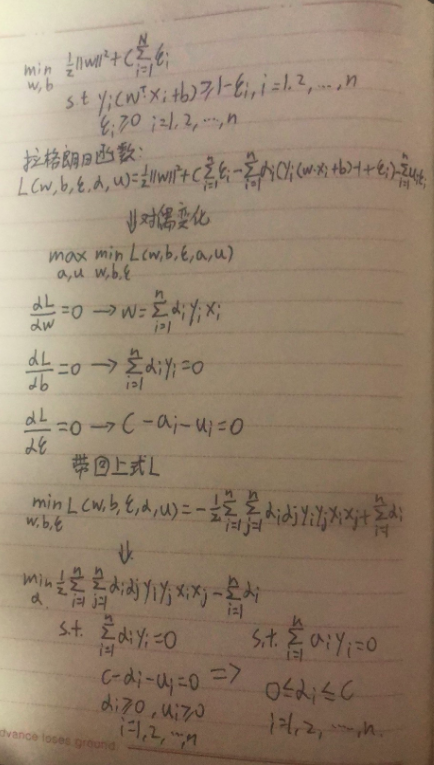 min w,b ½||w||² + C∑_{i=1}^{N} ξi
s.t yi(wᵀxi+b)≥1-ξi, i=1,2,…,n
ξi≥0 i=1,2,…,n
拉格朗日函数:
L(w,b,ξ,α,u)=½||w||²+C∑_{i=1}^{n}ξi-∑_{i=1}^{n}αi(yi(w·xi+b)-1+ξi)-∑_{i=1}^{n}uiξi
⇓对偶变化
max a,u min w,b,ξ L(w,b,ξ,a,u)
dL/dw=0 → w=∑_{i=1}^{n}αiyixi
dL/db=0 → ∑_{i=1}^{n}αiyi=0
dL/dξ=0 → C-ai-ui=0
带回上式L
min w,b,ξ L(w,b,ξ,α,u)=-½∑_{i=1}^{n}∑_{j=1}^{n}αiαjyiyjxixj+∑_{i=1}^{n}αi
⇓
min α ½∑_{i=1}^{n}∑_{j=1}^{n}αiαjyiyjxixj-∑_{i=1}^{n}αi
s.t. ∑_{i=1}^{n}αiyi=0
c-αi-ui=0 =>
αi≥0, ui≥0
i=1,2,…,n
s.t. ∑_{i=1}^{n}aiyi=0
0≤αi≤C
i=1,2,…,n.
dvance loses ground